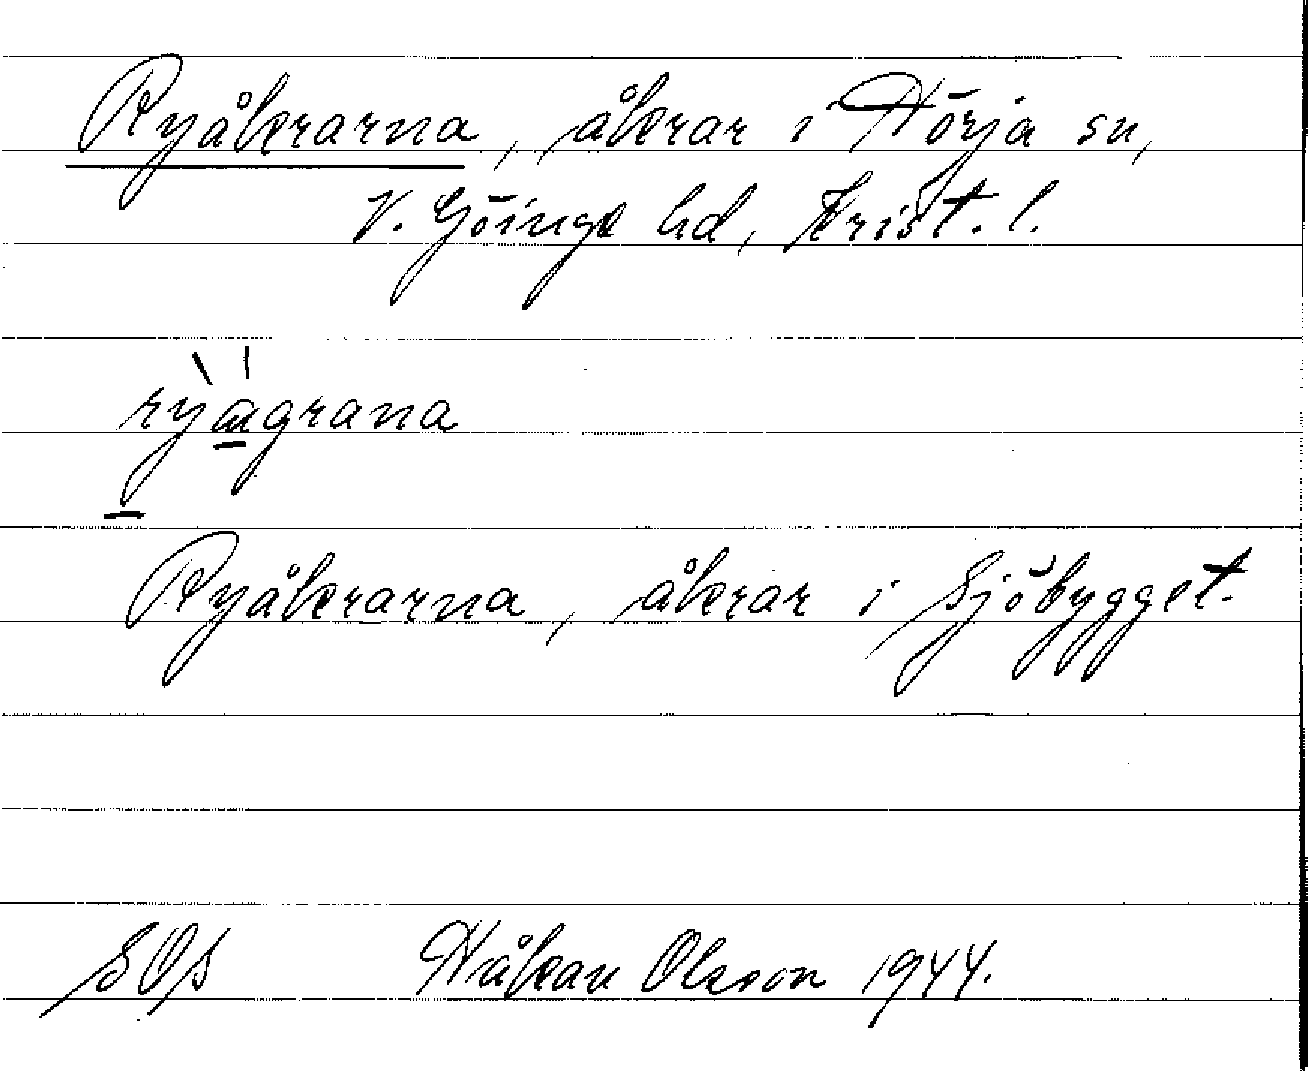 Ryåkrarna, åkrar i Hörja sn,
V. Göinge hd, Krist. l.
Ryåkrarna, åkrar i Sjöbygget.
SOS Håkan Olsson 1944.